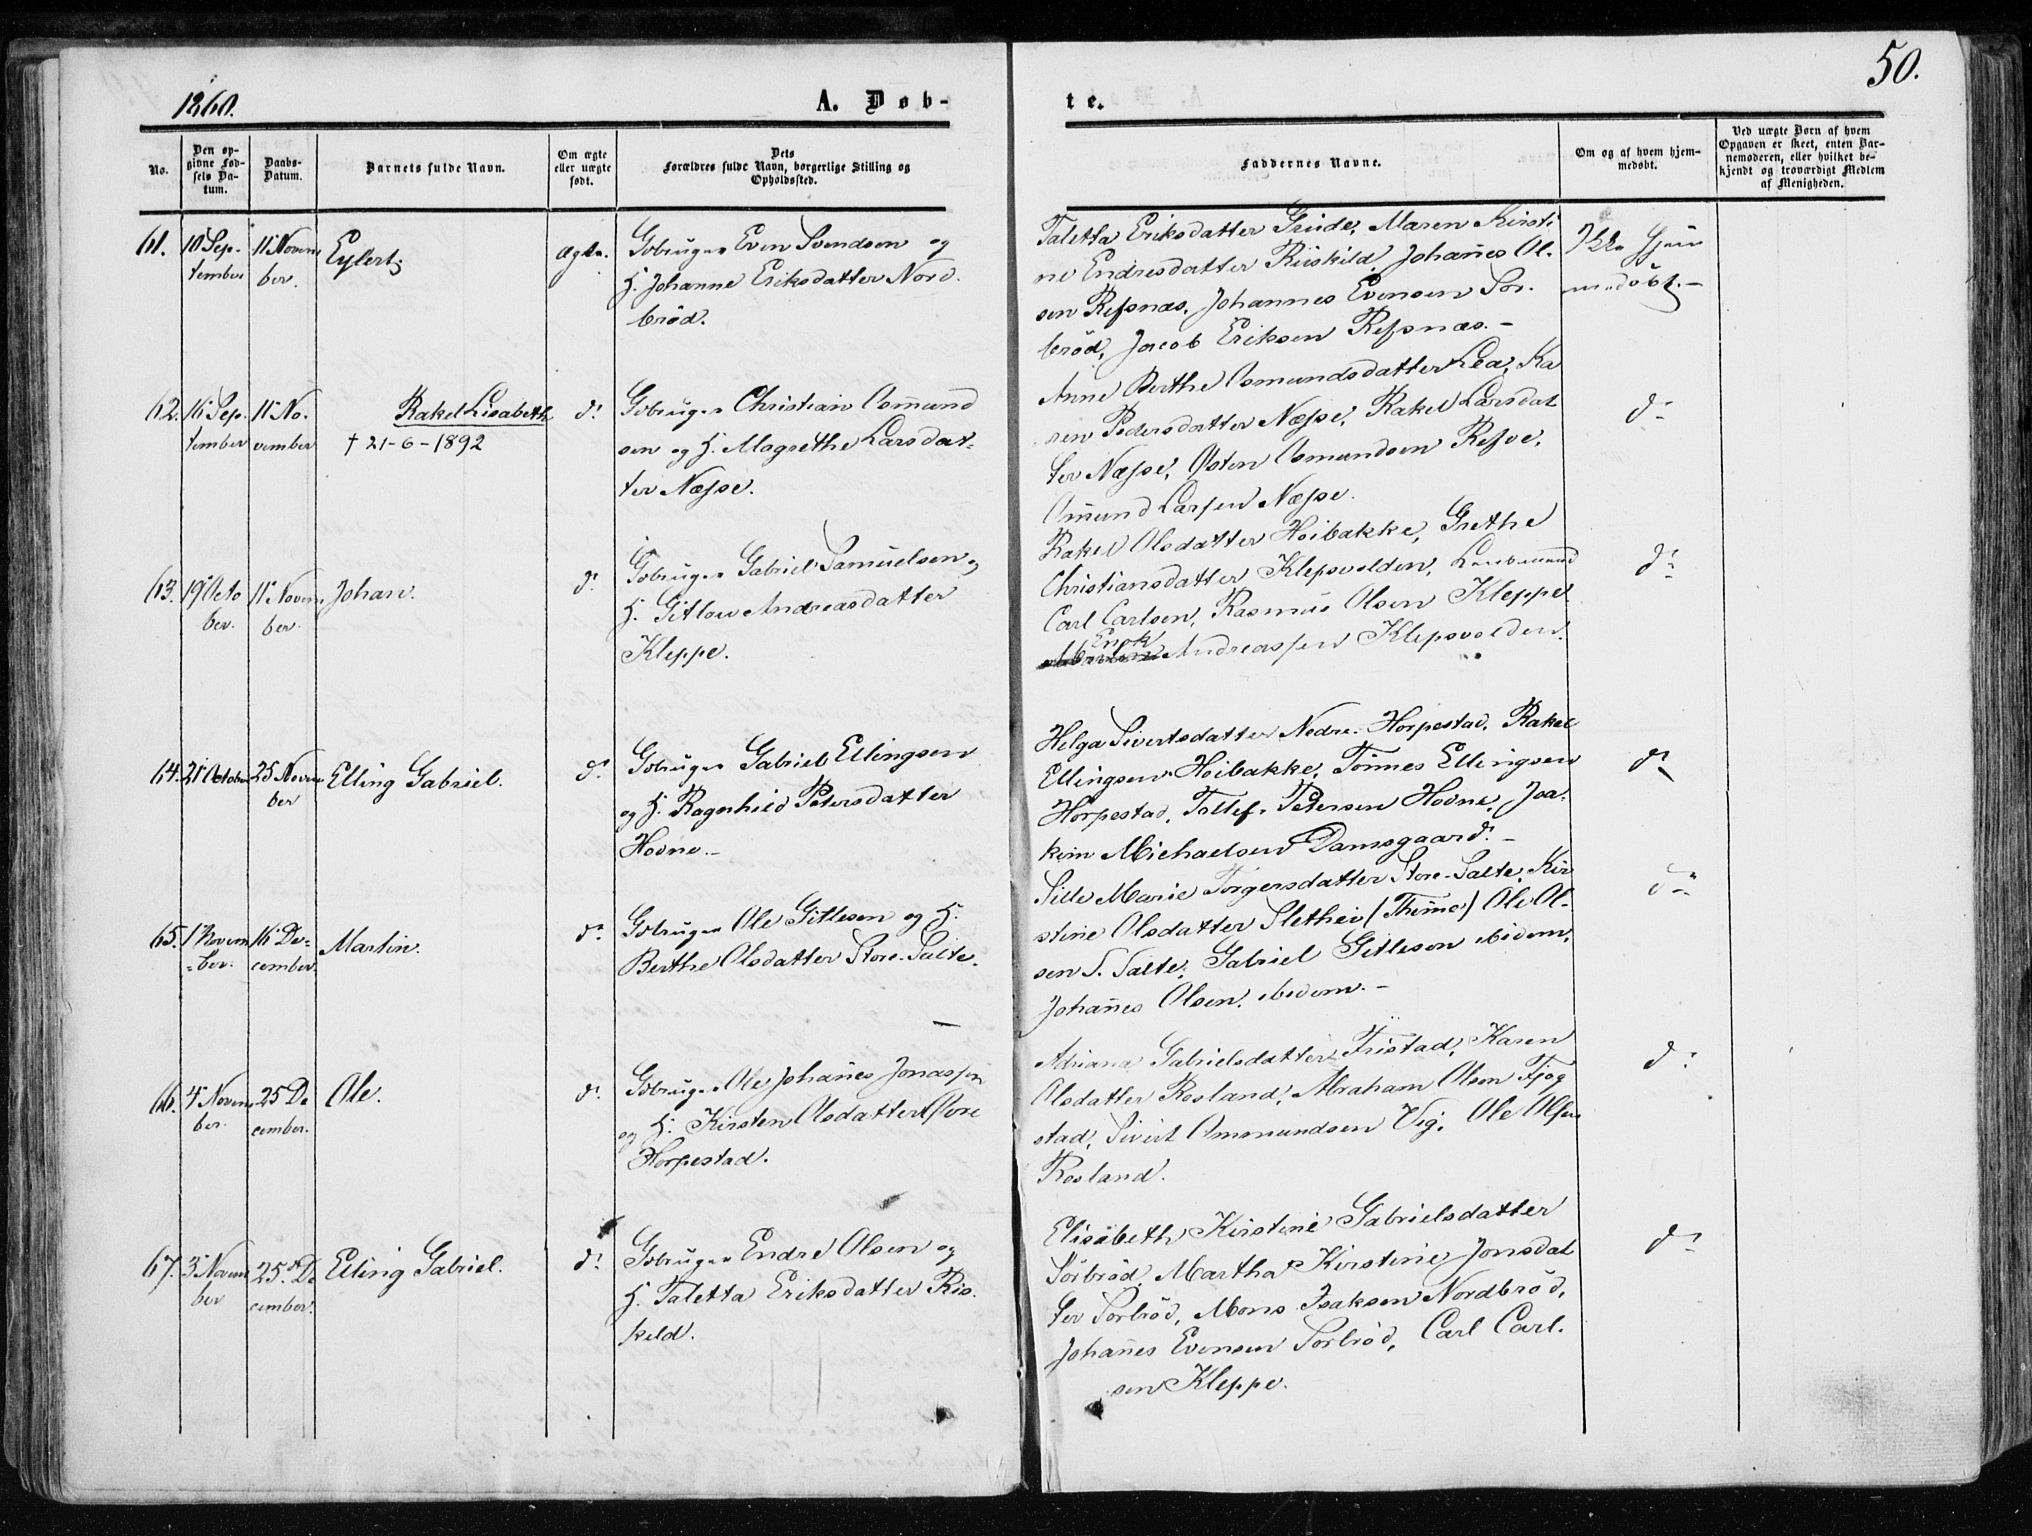 50.
1860.
A. Døb-
te.
No.
Den op-
givne Fød-
sels Da-
tum.
Daabs-
Datum.
Barnets fulde Navn.
Om ægte
eller uægte
født.
Dets
Forældres fulde Navn, borgerlige Stilling og
Opholdssted.
Faddernes Navne.
Om og af hvem hjem-
medøbt.
Ved uægte Børn af hvem
Opgaven er skeet, enten Bar-
nemoderen, eller hvilket be-
kjendt og troværdigt Medlem
af Menigheden.
61.
10 Sep-
tember
11 Novem
ber.
Eylert
Ægte.
Gbruger Even Svendsen og
H. Johanne Eriksdatter Nord.
brød.
Taletta Eriksdatter Grude, Maren Kirsti
ne Endresdatter Riiskild, Johañes Ol-
sen Refsnæs, Johannes Evensen Sør-
brød, Jacob Eriksen Refsnæs.-
Ikke hjem
medöbt.-
62.
16 Sep.
tember
11 No.
vember
Rakel Lisabeth
† 21-6-1892
do
Gbruger Christian Osmund
sen og H. Magrethe Larsdat-
ter Næsse.
Anne Berthe Osmundsdatter Lea, Ka
ren Pedersdatter Næsse, Rakel Larsdat
ter Næsse, Østen Osmundsen Refve,
Omund Larsen Næsse.
do
63.
19 Octo
ber.
11 Novem
ber.
Johan.
do
Gbruger Gabriel Samuelsen og
H. Gitlow Andreasdatter
Kleppe.
Rakel Olsdatter Höibakke, Grethe
Christiansdatter Klepsvolden,
Carl Carlsen, Rasmus Olsen Kleppe
Enok
Andreassen Klepsvolden.
do
64.
21 October
25 Novem
ber
Elling Gabriel.
do
Gbruger Gabriel Ellingsen
og H. Ragnhild Petersdatter
Hodne.-
Helga Sivertsdatter Nedre-Horpestad, Rakel
Ellingsen Höibakke, Tönnes Ellingsen
Horpestad, Tollef Petersen Hodne, Joa-
kim Michaelsen Damsgaard.-
do
65.
1 Novem
-ber.
16 De-
cember
Martin.
do
Gbruger Ole Gitlesen og H.
Berthe Olsdatter Store-Salte.
Sille Marie Torgersdatter Store-Salte, Kir
stine Olsdatter Slethei (Thime) Ole Ol-
sen S. Salte, Gabriel Gitlesen ibidem,
Johañes Olsen. ibidem.-
do
66.
4 Novem
ber.
25 De
cember.
Ole.
do
Gbruger Ole Johañes Jonassen
og H. Kirsten Olsdatter Øvre
Horpestad.
Adriana Gabrielsdatter Tristad, Karen
Olsdatter Rosland, Abraham Olsen Tjog
stad, Sivert Ommundsen Vig, Ole Olsen
Rosland.
do
67.
3 Novem
ber
25 De
cember.
Elling Gabriel.
do
Gbruger Endre Olsen og
H. Taletta Eriksdatter Ris-
keld.
Elisabeth Kirstine Gabrielsdatter
Sörbröd, Martha Kirstine Jonsdat
ter Sorbrød, Mons Isaksen Nordbröd,
Johañes Evensen Sorbrød, Carl Carl-
sen Kleppe.
do